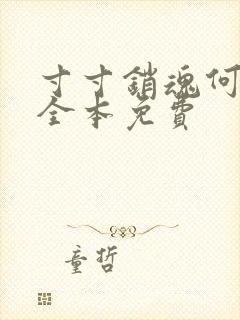 寸寸銷魂何
全本免費
童哲